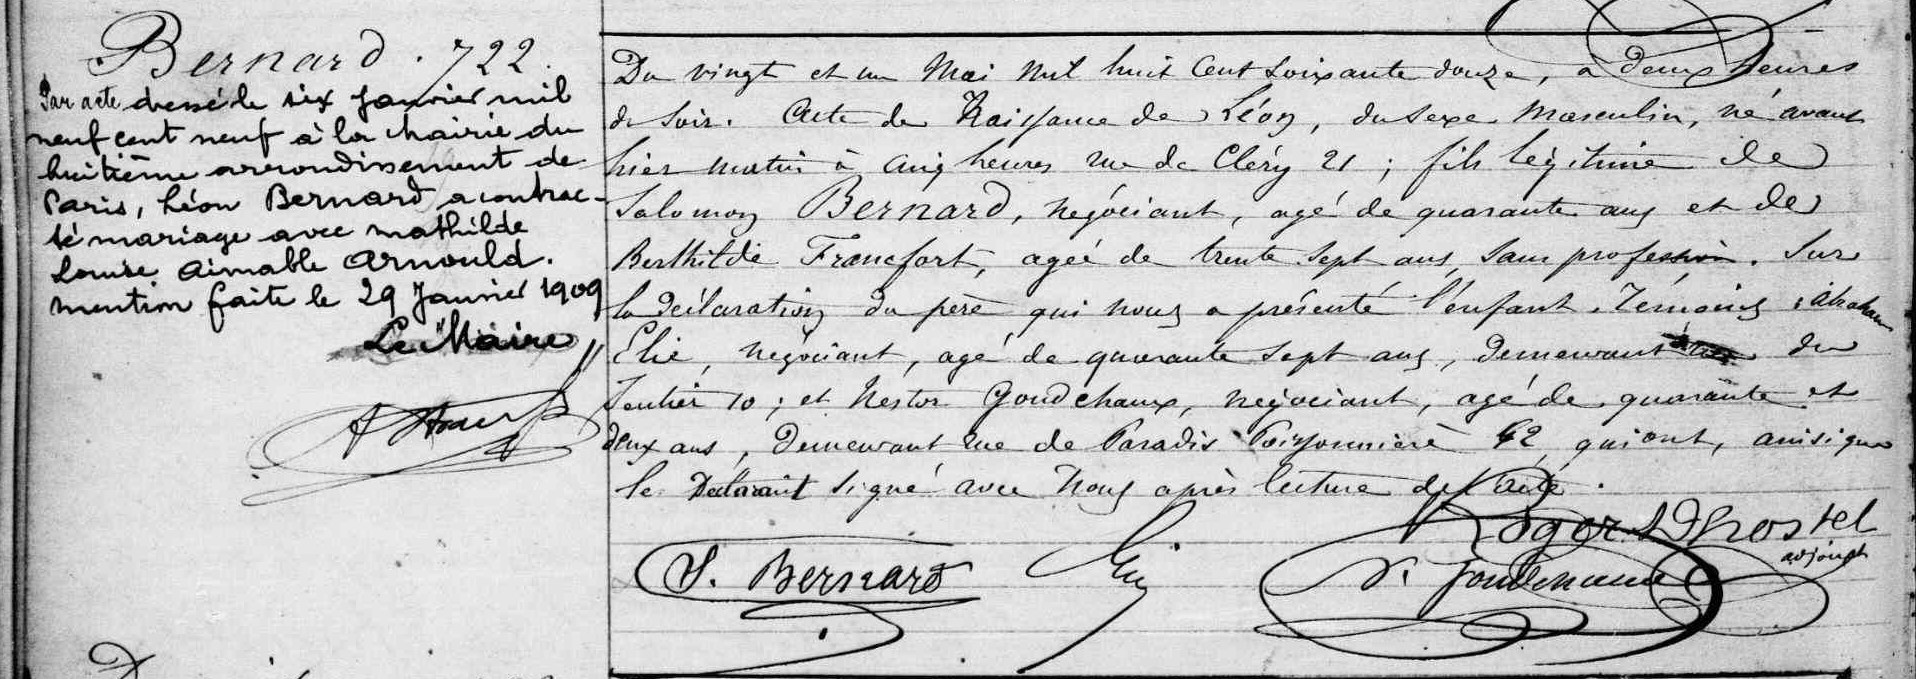 Bernard. 722.
Par acte dressé le six Janvier mil
neuf cent neuf à la Mairie du
huitième arrondissement de
Paris, Léon Bernard a contrac-
té mariage avec Mathilde
Louise Aimable Arnould.
mention faite le 29 Janvier 1909
Le Maire
Du vingt et un Mai Mil huit Cent soixante douze, à deux heures
du soir. Acte de Naissance de Léon, du sexe Masculin, né avant
hier matin à cinq heures rue de Cléry 21 ; fils légitime de
Salomon Bernard, négociant, agé de quarante ans et de
Berthilde Francfort, agée de trente sept ans, sans profession. Sur
la déclaration du père qui nous a présenté l'enfant. Témoins : Abraham
Elie, négociant, agé de quarante sept ans, demeurant du
Sentier 10 ; et Nestor Goudchaux, négociant, agé de quarante et
deux ans, demeurant rue de Paradis Poissonnière 42, qui ont, ainsi que
le Déclarant signé avec Nous après lecture de l'acte.
Roger Dhostel
adjoint
S. Bernard
Elie
N. Goudchaux